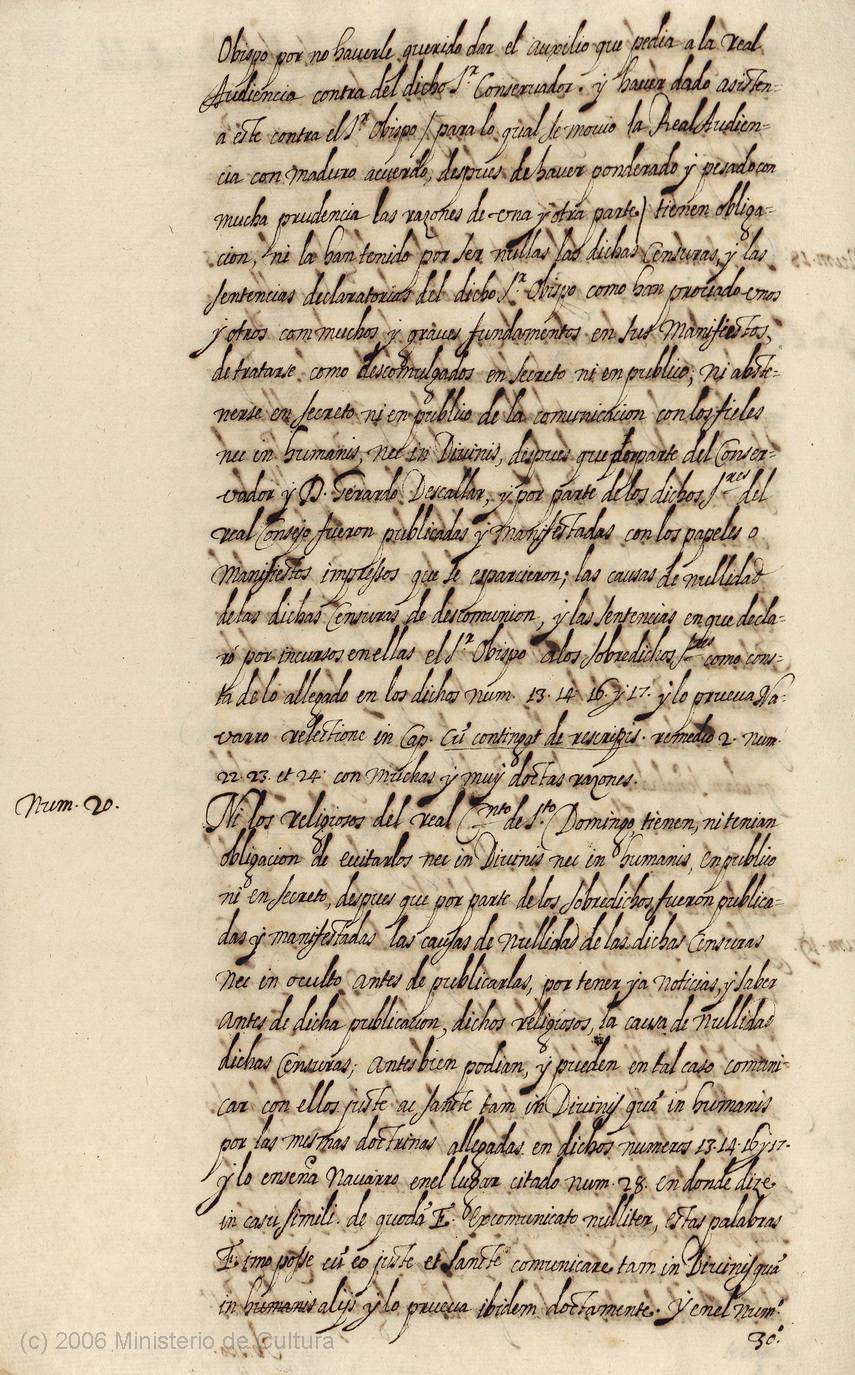 Obispo por no haverle querido dar el auxilio que pedia a la real
Audiencia contra del dicho S.r Conservador. y haver dado asisten-
a este contra el S.r Obispo / para lo qual se movio la Real Audien-
cia con maduro acuerdo, despues de haver ponderado y pesado con
mucha prudencia las razones de una y otra parte) tienen obliga-
cion, ni la han tenido por ser nullas las dichas Censuras, y las
sentencias declaratorias del dicho S.r Obispo como han provado unos
y otros con muchos y graves fundamentos en sus Manifiestos,
de tratarse como descomulgados en secreto ni en publico, ni abste-
nerse en secreto ni en publico de la comunicacion con los fieles
nec in humanis, nec in Divinis, despues que por parte del Conser-
vador y D. Gerardo Descallar, y por parte de los dichos S.res del
real Consejo fueron publicadas y manifestadas con los papeles o
Manifiestos impressos que se esparcieron; las causas de nullidad
de las dichas Censuras de descomunion, y las sentencias en que decla-
ró por incursos en ellas el S.r Obispo a los sobredichos S.res como cons-
ta de lo allegado en los dichos num. 13. 14. 16. y 17. y lo prueva Na-
varro relectione in Cap. Cũ contingat de rescriptis. remedio 2. num.
22. 23. et 24. con muchas y muy doctas razones.
Num. 20.
Ni los religiosos del real C.nto de S.to Domingo tienen, ni tenian
obligacion de evitarlos nec in Divinis nec in humanis, en publico
ni en secreto, despues que por parte de los sobredichos fueron publica-
das y manifestadas las causas de Nullidad de las dichas Censuras
Nec in oculto antes de publicarlas, por tener ya noticias, y saber
antes de dicha publicacion, dichos religiosos, la causa de Nullidad
dichas Censuras; antes bien podian, y pueden en tal caso comuni-
car con ellos juste ac sancte tam in Divinis quã in humanis
por las mesmas doctrinas allegadas en dichos numeros 13. 14. 16 y 17.
y lo enseña Navarro en el lugar citado num. 28. en donde dize
in casu simili. de quodã E. Excomunicato nulliter, estas palabras
E. imo posse cũ eo juste et sancte comunicare tam in Divinis quã
in humanis alijs y lo prueva ibidem doctamente. Y en el num.º
30.
(c) 2006 Ministerio de Cultura